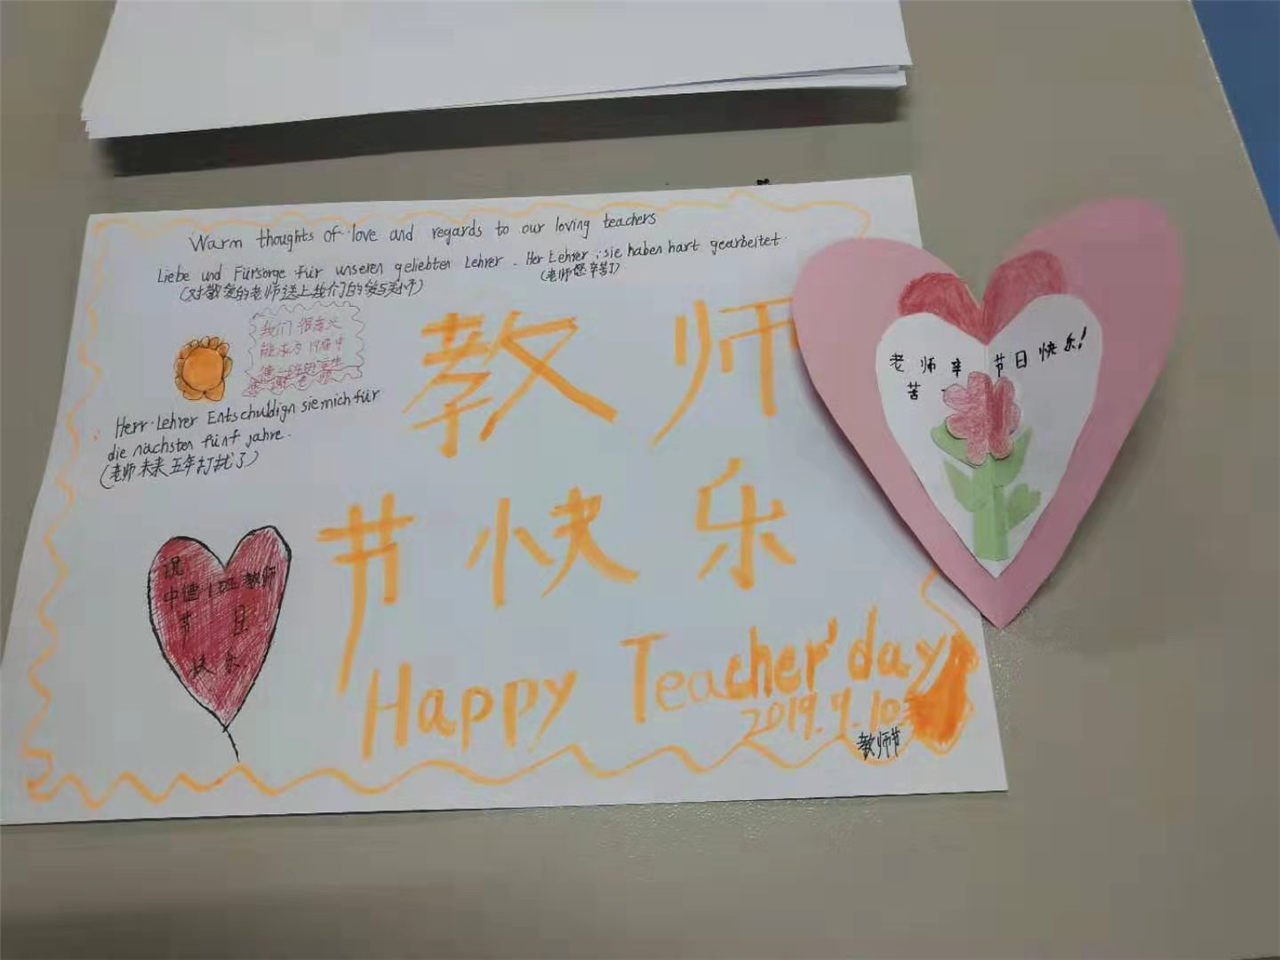 Warm thoughts of love and regards to our loving teachers
Liebe und Fürsorge für unseren geliebten Lehrer. Her Lehrer: sie haben hart gearbeitet
(对敬爱的老师送上我们的爱与关怀)
(老师您辛苦了)
我们很高兴
能成为19届中
德一班的学生
Herr Lehrer Entschuldign sie mich für
die nächsten fünf jahre.
(老师未来五年打扰了)
教师
节快乐
祝
中德1班教师
节日
快乐
Happy Teacher' day
2019.9.10
教师节
老师辛节日快乐!
苦